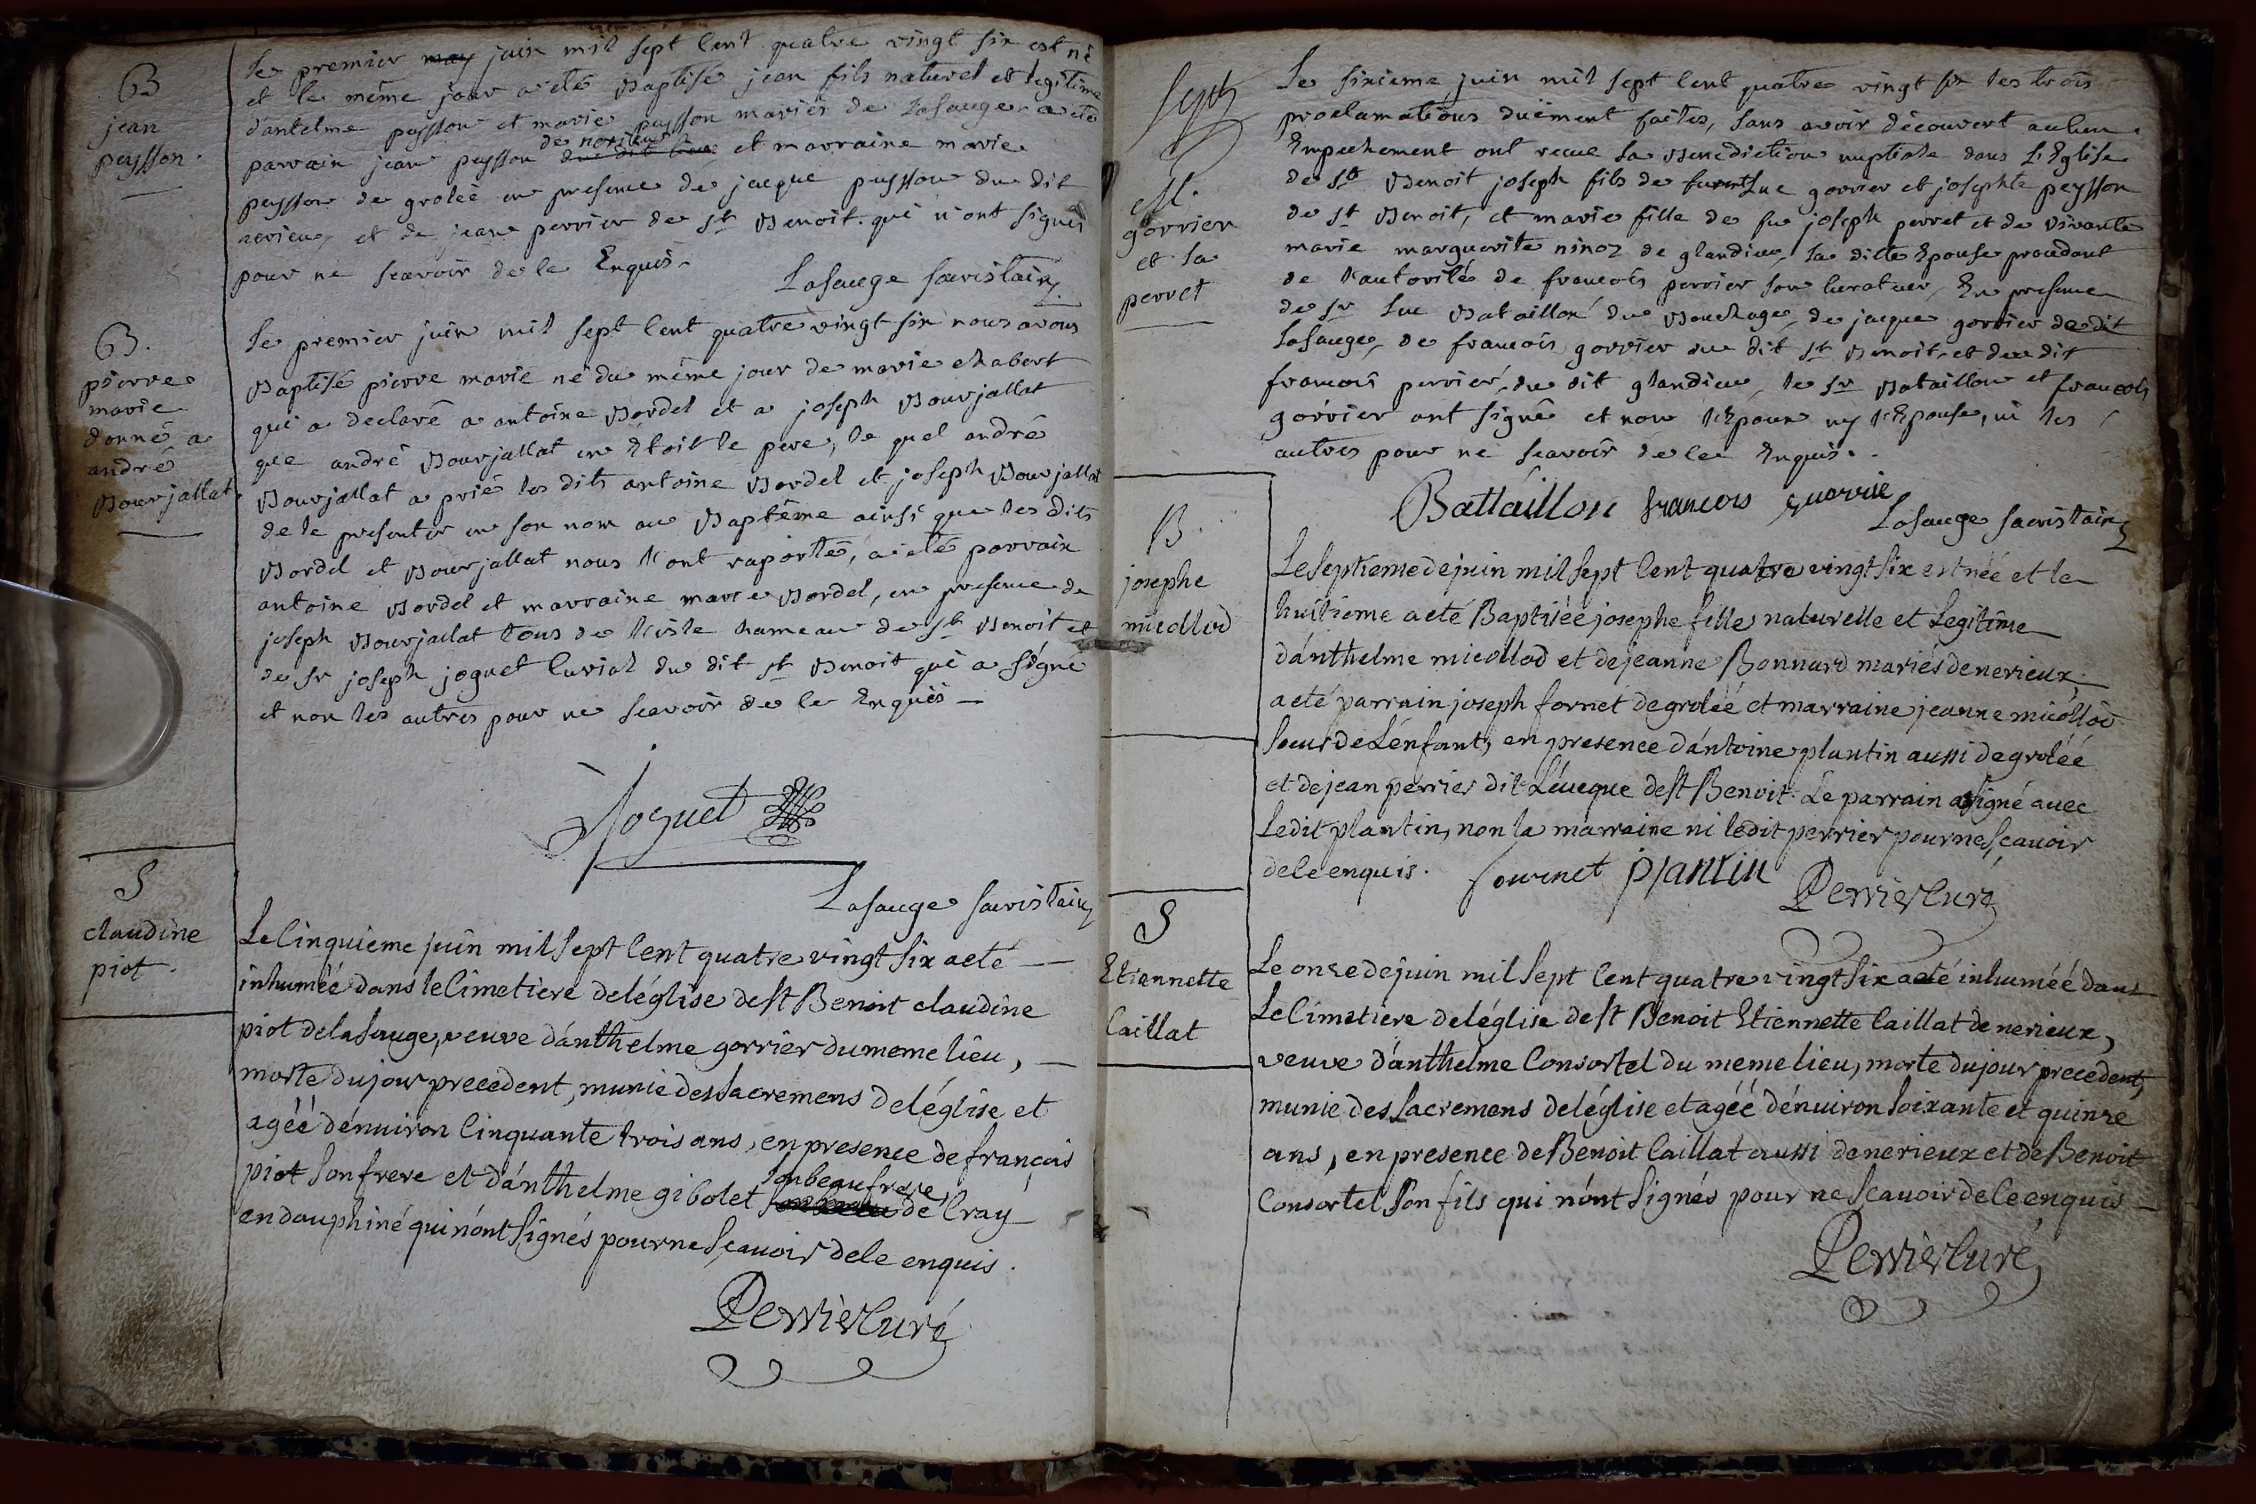 B
jean
peysson.
le premier may juin mil sept cent quatre vingt six est né
et le même jour a eté Baptisé jean fils naturel et legitime
d'antelme peysson et marie peysson mariés de Lasauge a eté
de norieux
parrain jean peysson et marraine marie
peysson de grolée en presence de jacque peysson du dit
nerieux et de jean perrier de st Benoit qui n'ont signés
pour ne sçavoir de ce Enquis.
Lasauge sacristain
B.
pierre
marie
donné a
andré
Bourjallat.
le premier juin mil sept cent quatre vingt six nous avons
Baptisé pierre marie né du même jour de marie chabert
qui a declaré a antoine Bordel et a joseph Bourjallat
que andré Bourjallat en Etoit le pere, le quel andré
Bourjallat a prié les dits antoine Bordel et joseph Bourjallat
de le presenter en son nom au Baptême ainsi que les dits
Bordel et Bourjallat nous l'ont raporté, a eté parrain
antoine Bordel et marraine marie Bordel, en presence de
joseph Bourjallat tous de l'isle hameau de st Benoit et
de sr joseph joguet curial du dit st Benoit qui a signé
et non les autres pour ne sçavoir de ce Enquis
Joguet
Lasauge sacristain
S
claudine
piot.
Le Cinquieme juin mil sept Cent quatre vingt six a eté
inhumée dans le Cimetiere de léglise de st Benoit claudine
piot de la sauge, veuve dánthelme gorrier du meme lieu,
morte du jour precedent, munie des sacremens de léglise et
agéé dénuiron Cinquante trois ans, en presence de françois
piot son frere et dánthelme gibolet son beaufrere de Cray
en dauphiné qui nónt signés pour ne sçavoir de ce enquis.
Perrier Curé
Sept
M.
gorrier
et la
perret
Le sixieme juin mil sept cent quatre vingt six les trois
proclamations duëment faites, sans avoir découvert aucun
Empechement ont recue la Benediction nuptiale dans L'Eglise
de st Benoit joseph fils de Luc gorrier et josephte peysson
de st Benoit, et marie fille de fu joseph perret et de vivante
marie marguerite ninoz de glandieu, la dite Epouse procedant
de l'autorité de francois perrier son curateur, En presence
de sr Luc Bataillon du Bouchage, de jacque gorrier de dit
Lasauge, de francois gorrier du dit st Benoit, et du dit
francois perrier, du dit glandieu, le sr Bataillon et francois
gorrier ont signé et non l'Epoux ny l'Epouse, ni les
autres pour ne sçavoir de ce Enquis.
Battaillon francois guorrie
Lasauge sacristain
B.
josephe
micollod
Le septieme de juin mil sept Cent quatre vingt six est née et le
huitieme a eté Baptiséé josephe fille naturelle et Legitime
dánthelme micollod et de jeanne Bonnard mariés de nerieux;
a eté parrain joseph fornet de grolée et marraine jeanne micollod
soeur de Lénfant, en presence dántoine plantin aussi de groléé
et de jean perrier dit Léveque de st Benoit. Le parrain a signé avec
Ledit plantin, non la marraine ni ledit perrier pour ne sçavoir
de ce enquis. fournet plantin
Perrier Curé
S
Etiennette
Caillat
Le onze de juin mil sept Cent quatre vingt six a eté inhuméé dans
Le Cimetiere de léglise de st Benoit Etiennette Caillat de nerieux,
veuve dánthelme Consortel du meme lieu, morte du jour precedent,
munie des sacremens de léglise et agéé dénuiron soixante et quinze
ans, en presence de Benoit Caillat aussi de nerieux et de Benoit
Consortel son fils qui nónt signés pour ne sçavoir de ce enquis
Perrier Curé